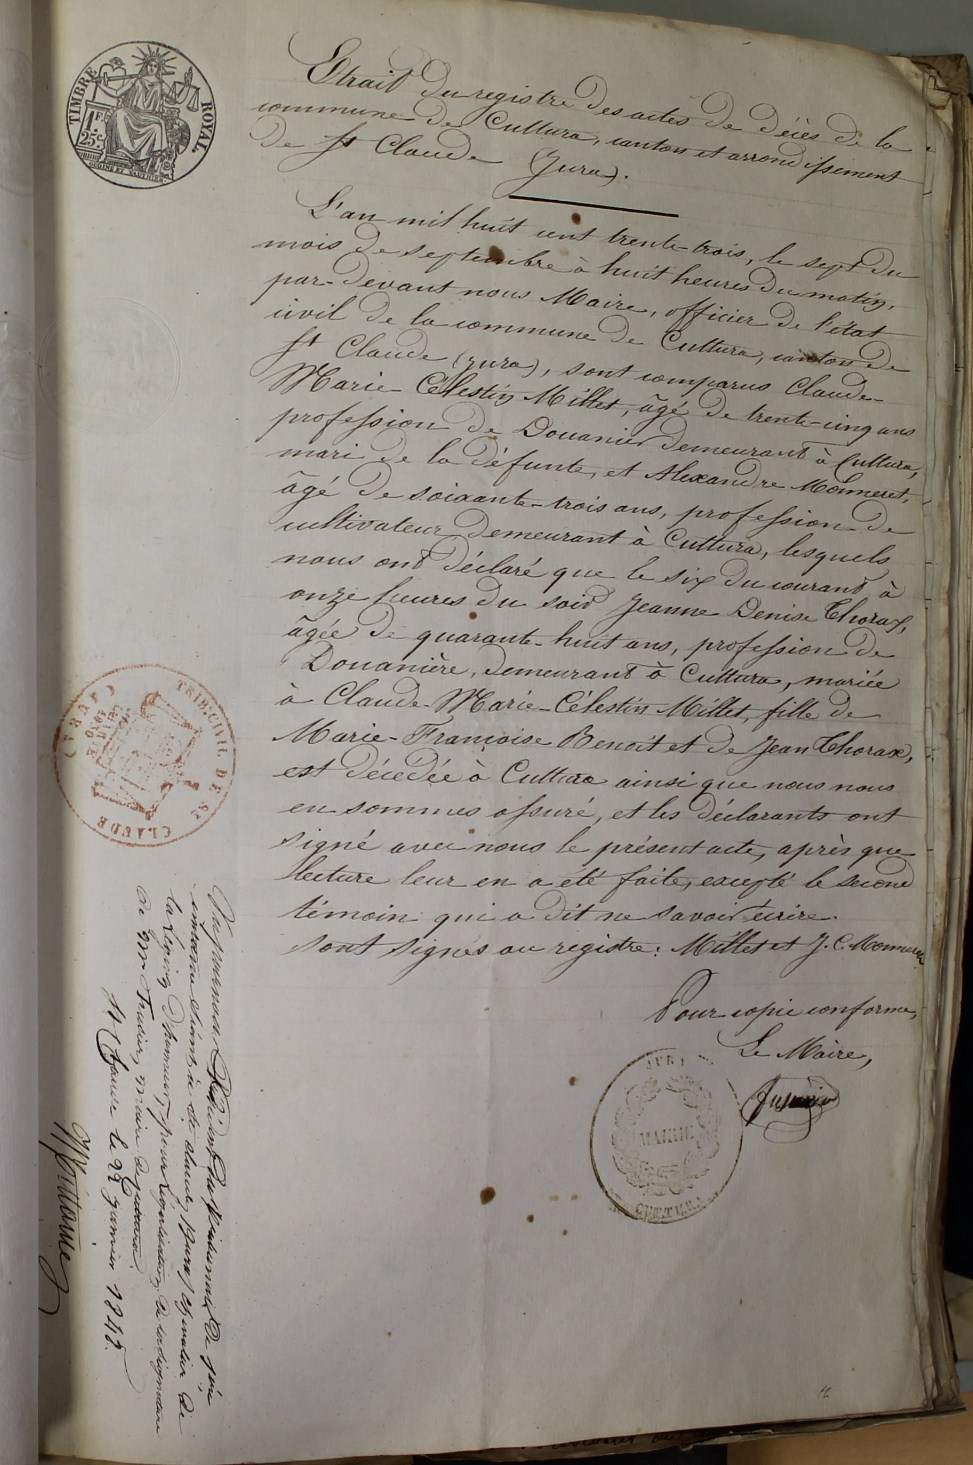 TIMBRE ROYAL
1F.
25c.
Extrait du registre des actes de décès de la
commune de Cuttura, canton et arrondissement
de St Claude (Jura).
L'an mil huit cent trente-trois, le sept du
mois de septembre à huit heures du matin,
par-devant nous Maire, officier de l'état
civil de la commune de Cuttura, canton de
St Claude (jura), sont comparus Claude-
Marie-Célestin Millet, âgé de trente-cinq ans
profession de Douanier demeurant à Cuttura,
mari de la défunte, et Alexandre Monneret,
âgé de soixante-trois ans, profession de
cultivateur demeurant à Cuttura, lesquels
nous ont déclaré que le six du courant à
onze heures du soir Jeanne Denise Thorax,
âgée de quarante-huit ans, profession de
Douanière, demeurant à Cuttura, mariée
à Claude-Marie-Célestin Millet, fille de
Marie-Françoise Benoit et de Jean Thorax,
est décédée à Cuttura ainsi que nous nous
en sommes assuré, et les déclarants ont
signé avec nous le présent acte, après que
lecture leur en a été faite, excepté le second
témoin qui a dit ne savoir écrire.
sont signés au registre: Millet et J. C. Monneret
Pour copie conforme,
Le Maire,
JURA
MAIRIE
CUTTURA
TRIB. CIVIL DE St CLAUDE (JURA)
Vu par nous Président du tribunal de 1ère
instance séant à St Claude, (Jura) chevalier de
la Légion d'honneur, pour légalisation de la signature
de Mr maire de Cuttura
St Claude le 22 janvier